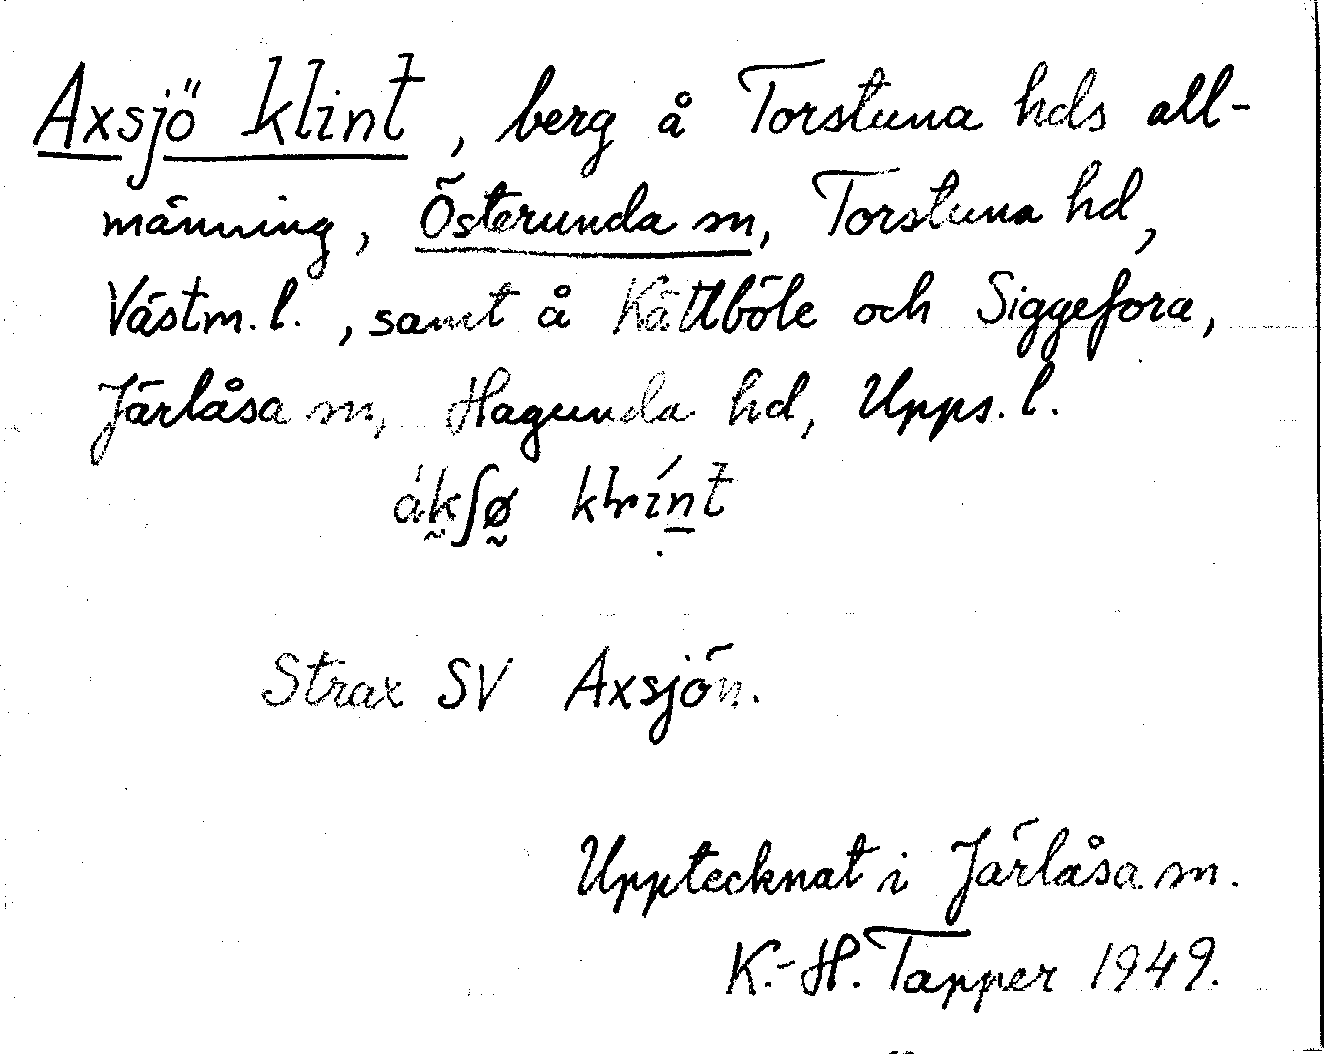 Axsjö klint, berg å Torstuna hds all-
männing, Österunda sn, Torstuna hd,
Västm. l., samt å Kättböle och Siggefora,
Järlåsa sn, Hagunda hd, Upps. l.
ákʃø klínt
Strax SV Axsjön.
Upptecknat i Järlåsa sn.
K.-H. Tapper 1949.